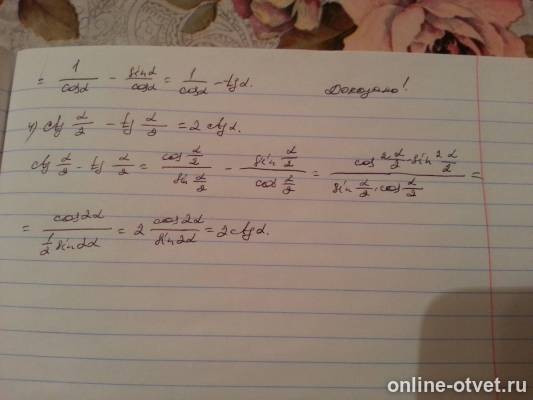 = 1/cosα − sinα/cosα = 1/cosα − tgα. Доказано!
4) ctg α/2 − tg α/2 = 2 ctgα.
ctg α/2 − tg α/2 = cos α/2 / sin α/2 − sin α/2 / cos α/2 = cos² α/2 − sin² α/2 / sin α/2 · cos α/2 =
= cos2α / ½ sin2α = 2 cos2α/sin2α = 2ctgα.
online-otvet.ru